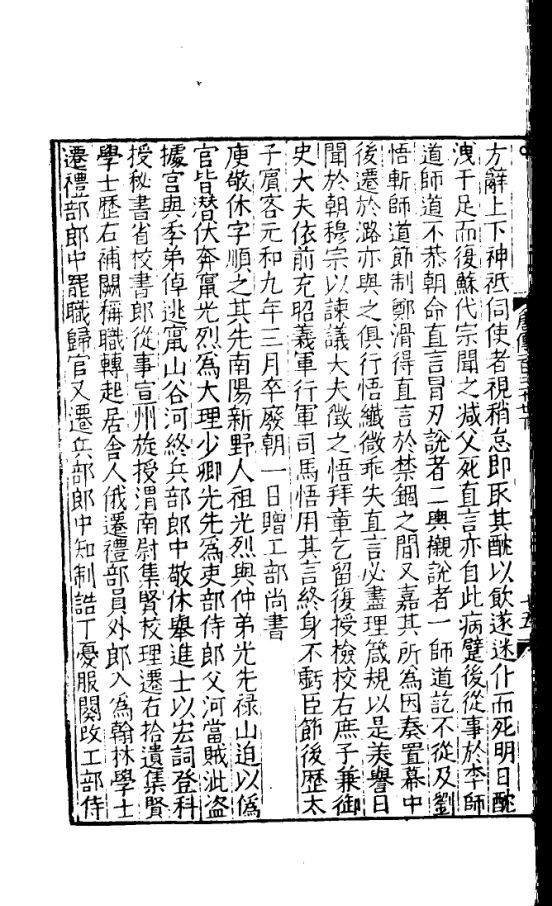 方辭上下神祇伺使者視稍怠即取其酖以飲遂迷仆而死明日酖
洩于足而復蘇代宗聞之减父死直言亦自此病躄後從事於李師
道師道不恭朝命直言冒刃說者二輿櫬說者一師道訖不從及劉
悟斬師道節制鄭滑得直言於禁錮之間又嘉其所為因奏置幕中
後遷於潞亦與之俱行悟纖微乖失直言必盡理箴規以是美譽日
聞於朝穆宗以諫議大夫徵之悟拜章乞留復授檢校右庶子兼御
史大夫依前充昭義軍行軍司馬悟用其言終身不虧臣節後歷太
子賓客元和九年三月卒廢朝一日贈工部尚書
庾敬休字順之其先南陽新野人祖光烈與仲弟光先祿山迫以僞
官皆潜伏奔竄光烈爲大理少卿光先爲吏部侍郎父河當賊泚盗
據宫與季弟倬逃竄山谷河終兵部郎中敬休舉進士以宏詞登科
授秘書省校書郎從事宣州旋授渭南尉集賢校理遷右拾遺集賢
學士歷右補闕稱職轉起居舍人俄遷禮部員外郎入爲翰林學士
遷禮部郎中罷職歸官又遷兵部郎中知制誥丁憂服闋改工部侍